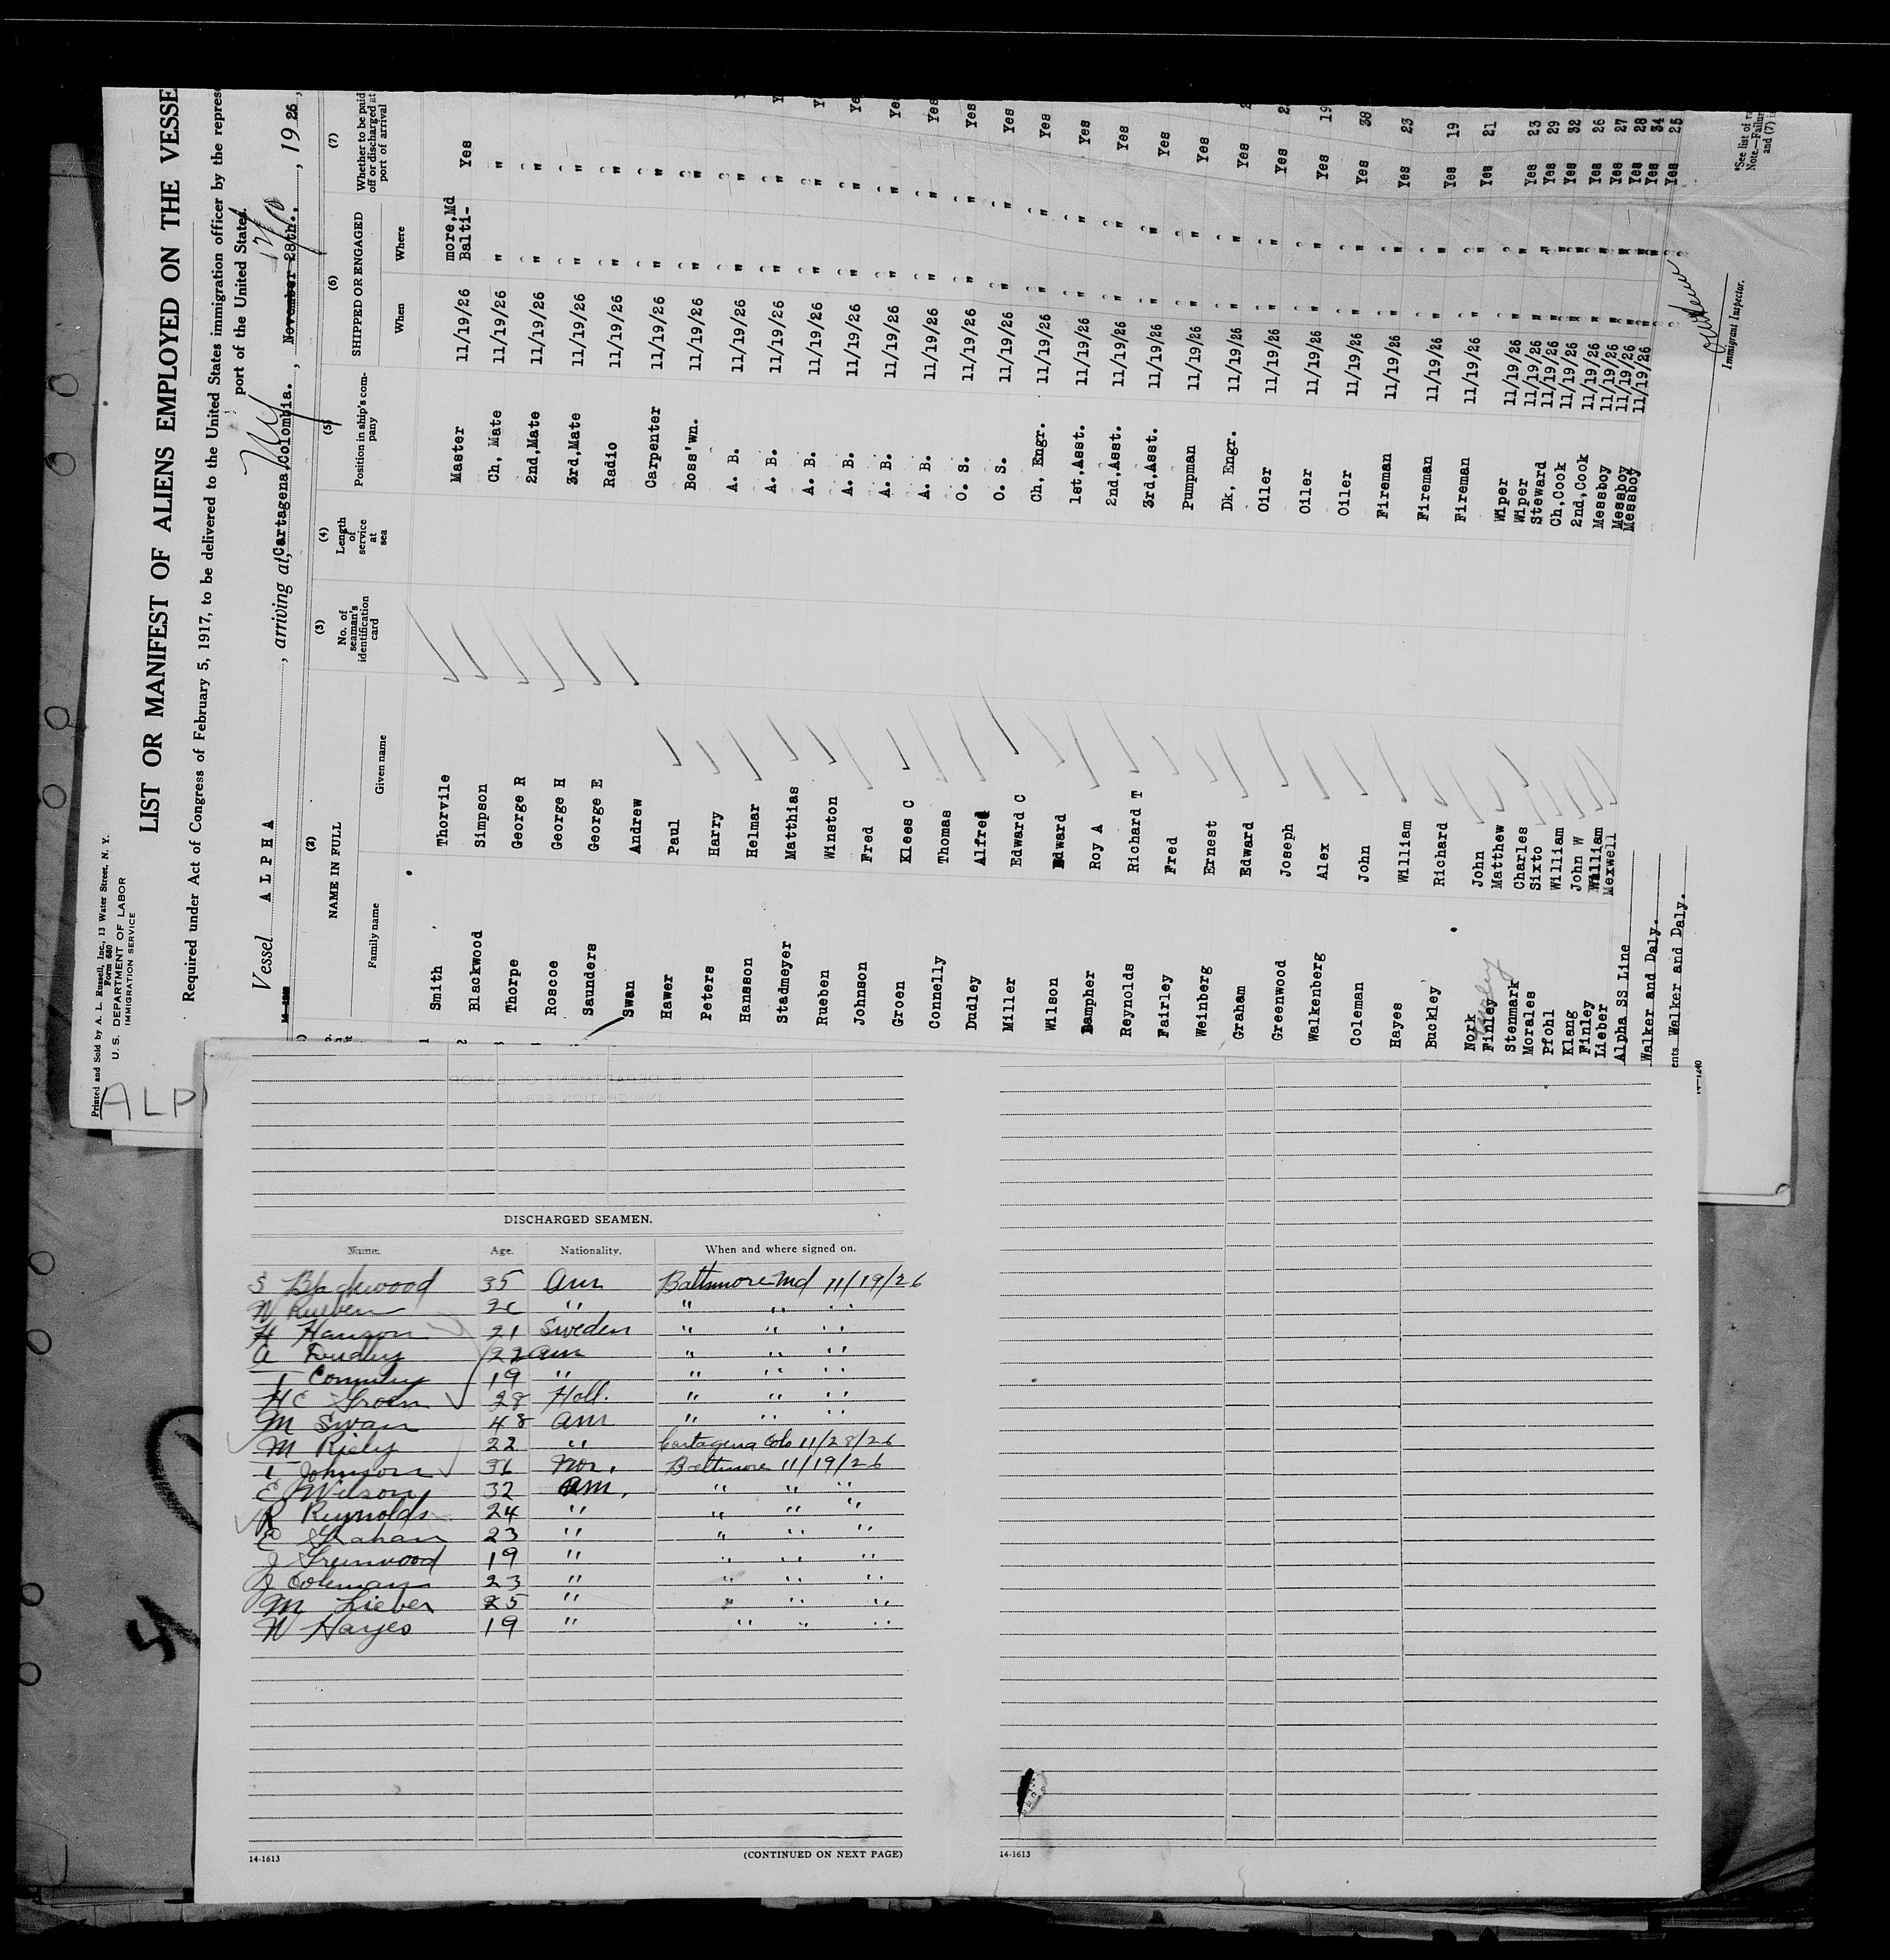 Printed and Sold by A. L. Russell, Inc., 13 Water Street, N. Y.
Form 680
U. S. DEPARTMENT OF LABOR
IMMIGRATION SERVICE
LIST OR MANIFEST OF ALIENS EMPLOYED ON THE VESSE
Required under Act of Congress of February 5, 1917, to be delivered to the United States immigration officer by the represe
port of the United States.
Vessel A L P H A, arriving at Cartagena, Colombia., November 28th., 1926,
NY
(2) (3) (4) (5) (6) (7)
NAME IN FULL No. of seaman's identification card Length of service at sea Position in ship's company SHIPPED OR ENGAGED Whether to be paid off or discharged at port of arrival
Family name Given name When Where
Smith Thorvile Master 11/19/26 Balti-more,Md Yes
Blackwood Simpson Ch, Mate 11/19/26 " "
Thorpe George R 2nd,Mate 11/19/26 " "
Roscoe George H 3rd,Mate 11/19/26 " "
Saunders George E Radio 11/19/26 " "
Swan Andrew Carpenter 11/19/26 " "
Hawer Paul Boss'wn. 11/19/26 " "
Peters Harry A. B. 11/19/26 " "
Hansson Helmar A. B. 11/19/26 " "
Stadmeyer Matthias A. B. 11/19/26 " "
Rueben Winston A. B. 11/19/26 " "
Johnson Fred A. B. 11/19/26 " "
Groen Klees C A. B. 11/19/26 " " Yes
Connelly Thomas O. S. 11/19/26 " " Yes
Dudley Alfred O. S. 11/19/26 " " Yes
Miller Edward C Ch, Engr. 11/19/26 " " Yes
Wilson Edward 1st,Asst. 11/19/26 " " Yes
Dampher Roy A 2nd,Asst. 11/19/26 " " Yes
Reynolds Richard T 3rd,Asst. 11/19/26 " " Yes
Fairley Fred Pumpman 11/19/26 " " Yes
Weinberg Ernest Dk, Engr. 11/19/26 " " Yes
Graham Edward Oiler 11/19/26 " " Yes
Greenwood Joseph Oiler 11/19/26 " " Yes
Walkenberg Alex Oiler 11/19/26 " " Yes
Coleman John Fireman 11/19/26 " " Yes
Hayes William Fireman 11/19/26 " " Yes 19
Buckley Richard Fireman 11/19/26 " " Yes
Nork John Wiper 11/19/26 " " Yes
Finley Matthew Wiper 11/19/26 " " Yes
Stenmark Charles Steward 11/19/26 " " Yes
Morales Sixto Ch,Cook 11/19/26 " " Yes
Pfohl William 2nd,Cook 11/19/26 " " Yes
Klang John W Messboy 11/19/26 " " Yes
Finley William Messboy 11/19/26 " " Yes
Lieber Mexwell Messboy 11/19/26 " " Yes 25
Alpha SS Line
Walker and Daly.
ents Walker and Daly.
Immigrant Inspector.
ALP
DISCHARGED SEAMEN.
Name. Age. Nationality. When and where signed on.
S Blackwood 35 Am Baltimore Md 11/19/26
W Rueben " " " "
H Hanson 21 Sweden " " "
A Dudley 22 Am " " "
T Connley 19 " " " "
HC Groen 28 Holl. " " "
M Swan 48 Am " " "
M Riely 22 " Cartagena Col 11/28/26
Johnson 36 Nor. Baltimore 11/19/26
E Wilson 32 Am. " " "
R Reynolds 24 " " " "
E Graham 23 " " " "
J Greenwood 19 " " " "
J Coleman 23 " " " "
M Lieber 25 " " " "
W Hayes 19 " " " "
14-1613 (CONTINUED ON NEXT PAGE) 14-1613